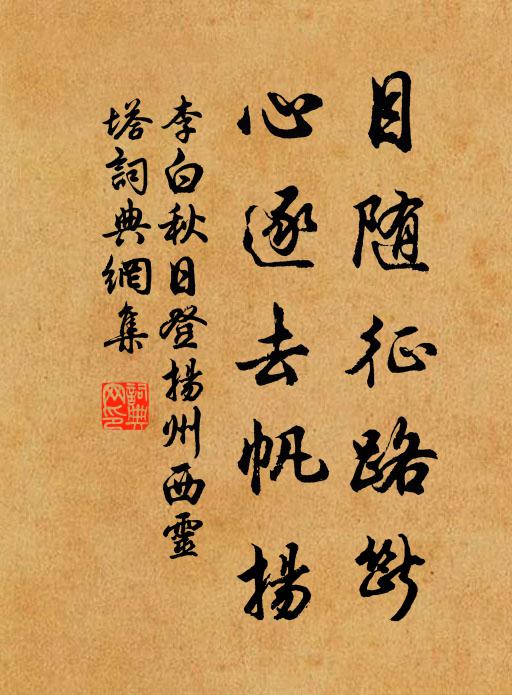 目随征路斷
心逐去帆揚
李白秋日登揚州西靈
塔詞典網集
詞典网印